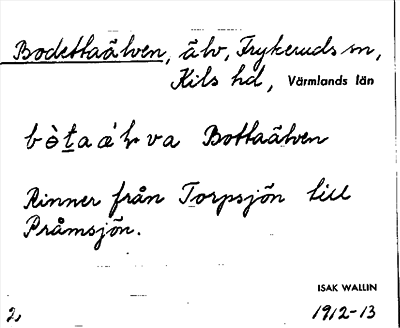 Bodettaälven, älv, Frykeruds sn,
Kils hd, Värmlands län
bòt̠aáḷva Bottaälven
Rinner från Torpsjön till
Pråmsjön.
ISAK WALLIN
2, 1912-13